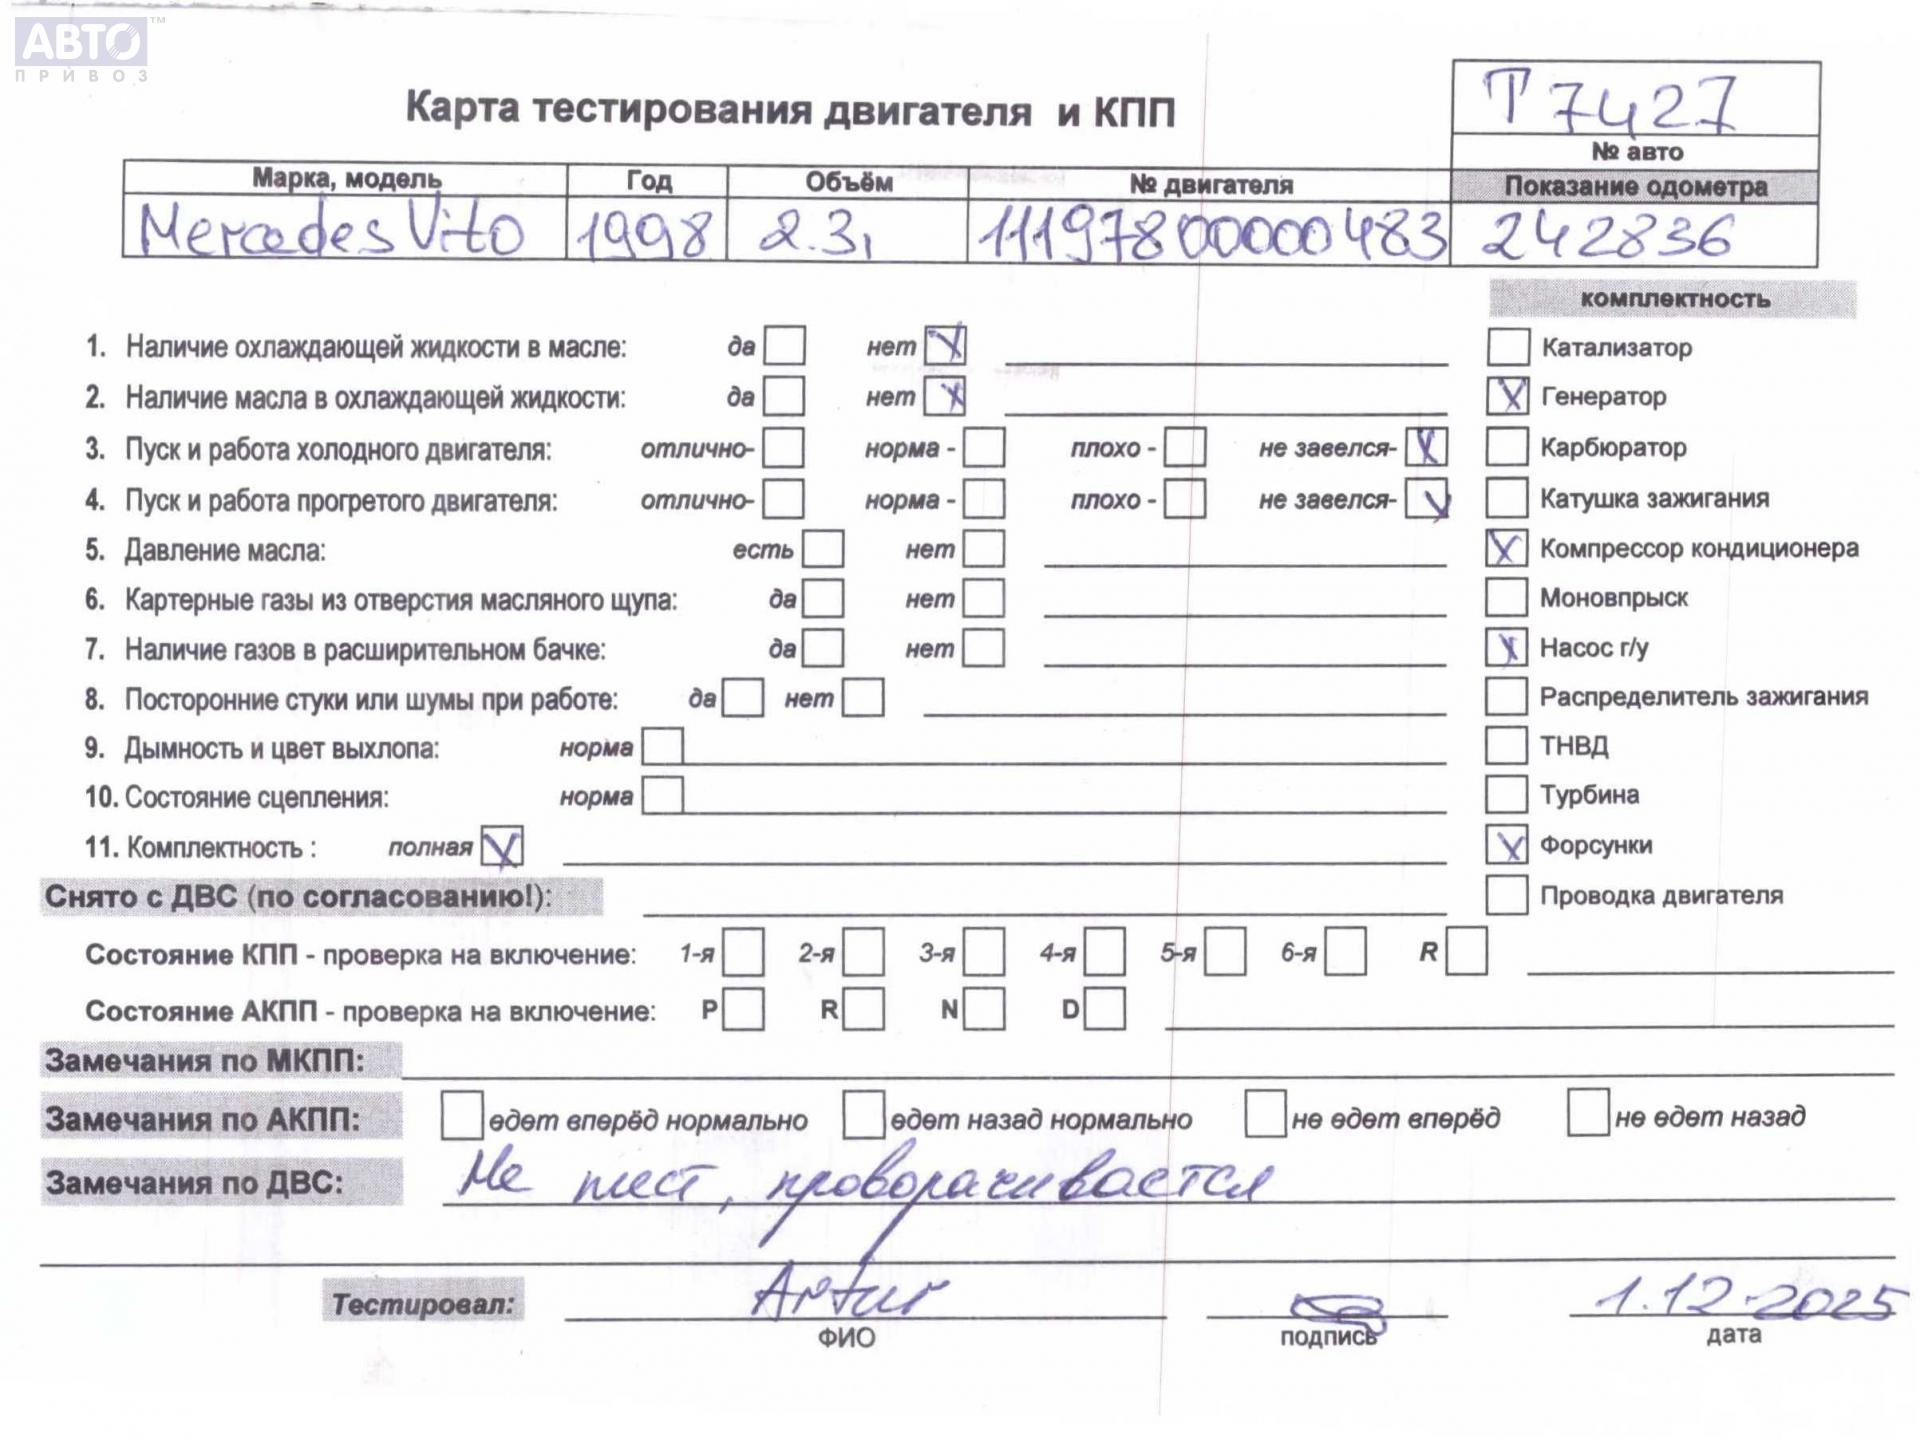 АВТО™
ПРИВОЗ
Карта тестирования двигателя и КПП
T 7427
№ авто
Марка, модель Год Объём № двигателя Показание одометра
Mercedes Vito 1998 2.3i 11197800000483 242836
комплектность
1. Наличие охлаждающей жидкости в масле: да нет X Катализатор
2. Наличие масла в охлаждающей жидкости: да нет X X Генератор
3. Пуск и работа холодного двигателя: отлично- норма - плохо - не завелся- X Карбюратор
4. Пуск и работа прогретого двигателя: отлично- норма - плохо - не завелся- V Катушка зажигания
5. Давление масла: есть нет X Компрессор кондиционера
6. Картерные газы из отверстия масляного щупа: да нет Моновпрыск
7. Наличие газов в расширительном бачке: да нет X Насос г/у
8. Посторонние стуки или шумы при работе: да нет Распределитель зажигания
9. Дымность и цвет выхлопа: норма ТНВД
10. Состояние сцепления: норма Турбина
11. Комплектность : полная X X Форсунки
Снято с ДВС (по согласованию!): Проводка двигателя
Состояние КПП - проверка на включение: 1-я 2-я 3-я 4-я 5-я 6-я R
Состояние АКПП - проверка на включение: P R N D
Замечания по МКПП:
Замечания по АКПП: едет вперёд нормально едет назад нормально не едет вперёд не едет назад
Замечания по ДВС: Не тест, проворачивается
Тестировал: Artur 1.12.2025
ФИО подпись дата